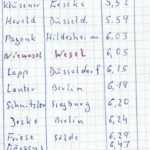 Klüsener Leseke 5,52
Herold Düsseld. 5.59
Pagonk Hildesheim 6,03
Niewword Wesel 6,05
Lapp Düsseldorf 6,15
Lauter Berlin 6,19
Schnitzler Siegburg 6,20
Jeske Berlin 6,24
Friese Sölde 6,27
6,47